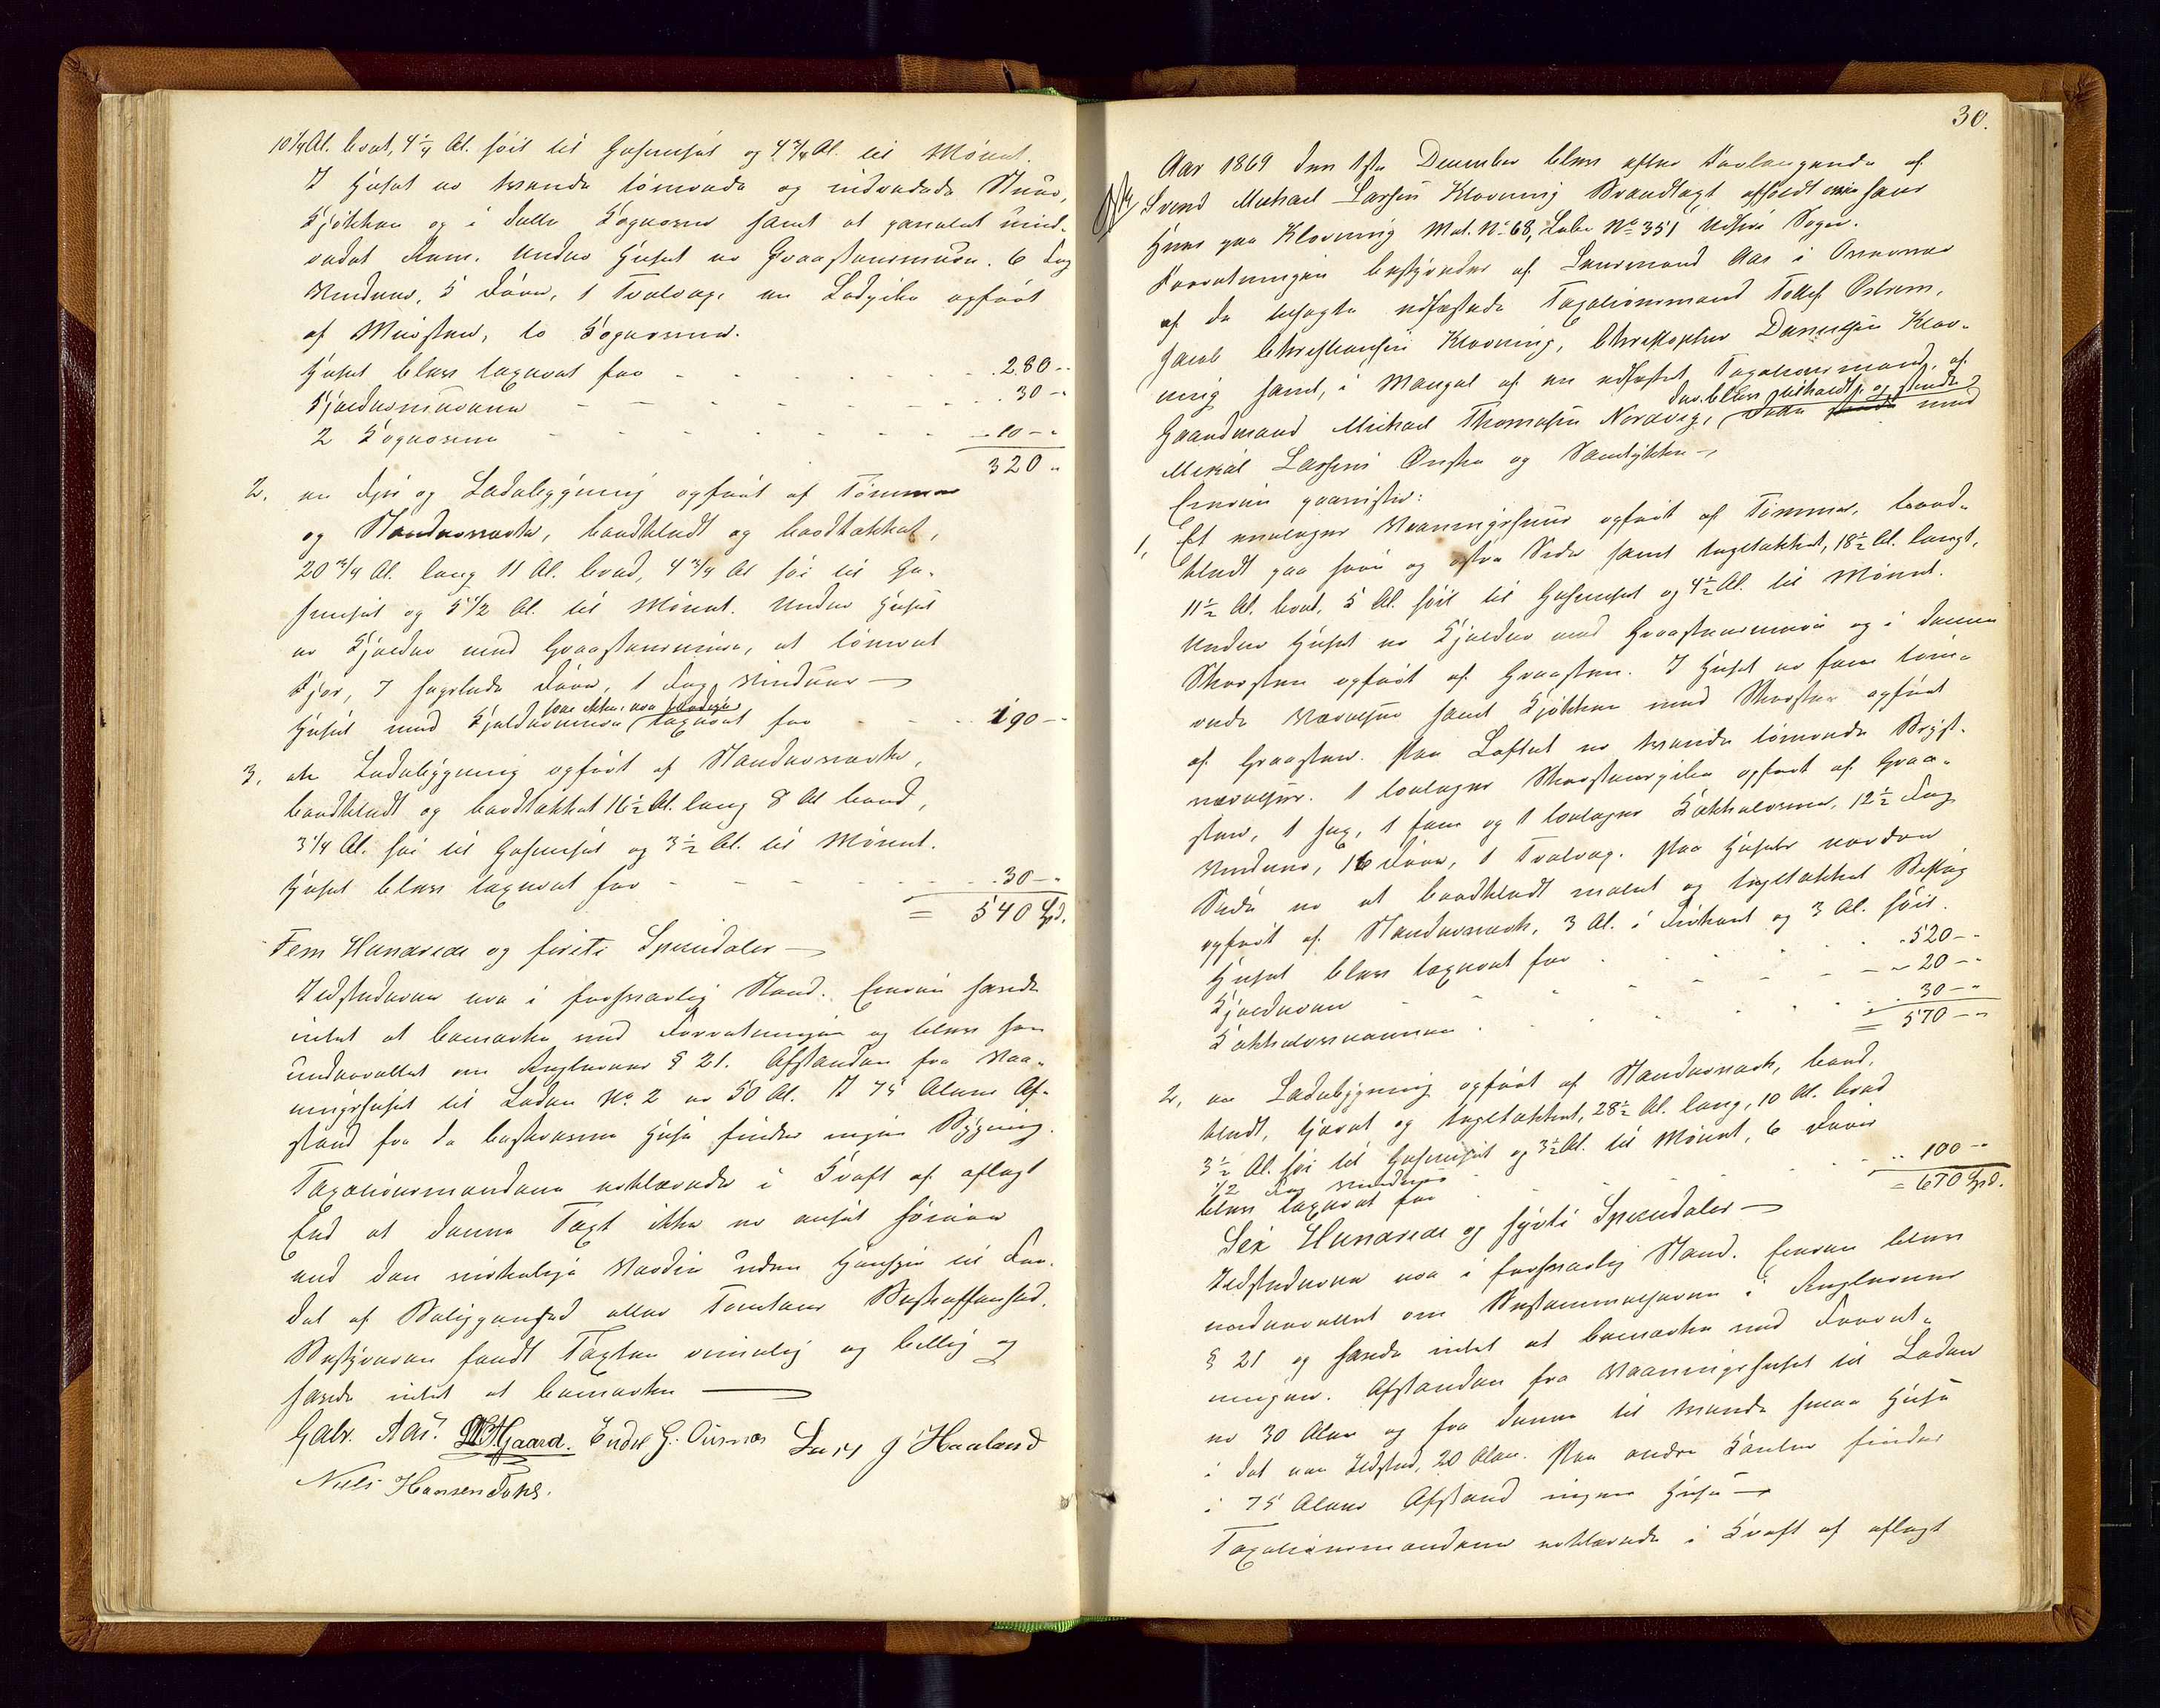 10¼ Al. bred, 4¼ Al. høit til Gesimset og 4¾ Al. til Mønet.
I Huset er tvende tømrede og indredede Stuer,
Kjøkken og i dette Kogeovn samt et panelet uind-
redet Rum. Under Huset er Graastensmure. 6 Fag
Vinduer, 5 Døre, 1 Trætrap, en Ladpibe opført
af Mursten, to Kogeovne.
Huset blev taxeret for - - - 280 - -
Kjeldermurene - - - 30 - -
2 Kogeovne - - - 10 - -
320 -
2. en Fjøs og Ladebygning opført af Tømmer
og Stenderværk, bordklædt og bordtækket,
20¾ Al. lang 11 Al. bred, 4¾ Al høi til Ge-
simset og 5½ Al. til Mønet. Under Huset
er Kjelder med Graastensmure, et tømret
Fjøs, 7 Døre, 1 Fag Vinduer —
Huset med Kjeldermure taxeret for - - 190 - -
3. en Ladebygning opført af Stenderværk,
bordklædt og bordtækket 16½ Al. lang 8 Al bred,
3¼ Al. høi til Gesimset og 3½ Al. til Mønet.
Huset blev taxeret for - - - 30 - -
= 540 Spd.
Fem Hundrede og firti Speciedaler —
Ildstederne var i forsvarlig Stand. Eieren havde
intet at bemærke ved Forretningen og blev han
underrettet om Reglernes § 21. Afstanden fra Vaa-
ningshuset til Laden No. 2 er 50 Al. I 75 Alens Af-
stand fra de beskrevne Huse findes ingen Bygning.
Taxationsmændene erklærede i Kraft af aflagt
Eed at denne Taxt ikke er ansat høiere
end den virkelige Værdie uden Hensyn til For-
del af Beliggenhed eller Tomtens Beskaffenhed.
Bestyreren fandt Taxten rimelig og billig og
havde intet at bemærke —
Gabr. Aas. Gaard. Endre G. Lars J Haaland
Niels Hansen
30.
Aar 1869 den 1ste December blev efter Forlangende af
Svend Michael Larsen Klovning Brandtaxt afholdt over hans
Huse paa Klovning Mat. No 68, Løbe No 351 Sogn.
Forretningen bestyredes af Lensmand Aas i Overvær
af de besagte edfæstede Taxationsmænd Tollef Østrem,
Jacob Christiansen Klovning, Christopher Danielsen Klov-
ning samt, i Mangel af en edfæstet Taxationsmand, af
Gaardmand Michael Thomasen Nordvig, med
Larsens Ønske og Samtykke —
Eieren paaviste:
1, Et enetages Vaaningshuus opført af Tømmer, bord-
klædt paa søre og østre Side samt tegltækket, 18½ Al. langt,
11½ Al. bred, 5 Al. høit til Gesimset og 4½ Al. til Mønet.
Under Huset er Kjelder med Graastensmure og i denne
Skorsten opført af Graasten. I Huset er fem tøm-
rede Værelser samt Kjøkken med Skorsten opført
af Graasten. Paa Loftet er tvende tømrede Bryst-
værelser. 1 toetages Skorstenspibe opført af Graa-
sten, 1 sex, 1 fem og 1 toetages Kakkelovn, 12½ Fag
Vinduer, 16 Døre, 1 Trætrap. Paa Husets nordre
Side er et bordklædt malet og tegltækket Bislag
opført af Stenderværk, 3 Al. i Firkant og 3 Al. høit.
Huset blev taxeret for - - - 520 - -
Kjelderen - - - 20 - -
Kakkelovnene - - - 30 - -
= 570 - -
2, en Ladebygning opført af Stenderværk, bord-
klædt, tjæret og tegltækket, 28½ Al. lang, 10 Al. bred
3½ Al. høi til Gesimset og 3½ Al. til Mønet, 6 Døre
½ Fag Vinduer
blev taxeret for - - - 100 - -
= 670 Spd.
Sex Hundrede og sytti Speciedaler —
Ildstederne var i forsvarlig Stand. Eieren blev
underrettet om Bestemmelserne i Reglernes
§ 21 og havde intet at bemærke ved Forret-
ningen. Afstanden fra Vaaningshuset til Laden
er 30 Alen og fra denne til tvende smaa Huse
i det ene Ildsted, 20 Alen. Paa andre Kanter findes
i 75 Alens Afstand ingen Huse —
Taxationsmændene erklærede i Kraft af aflagt